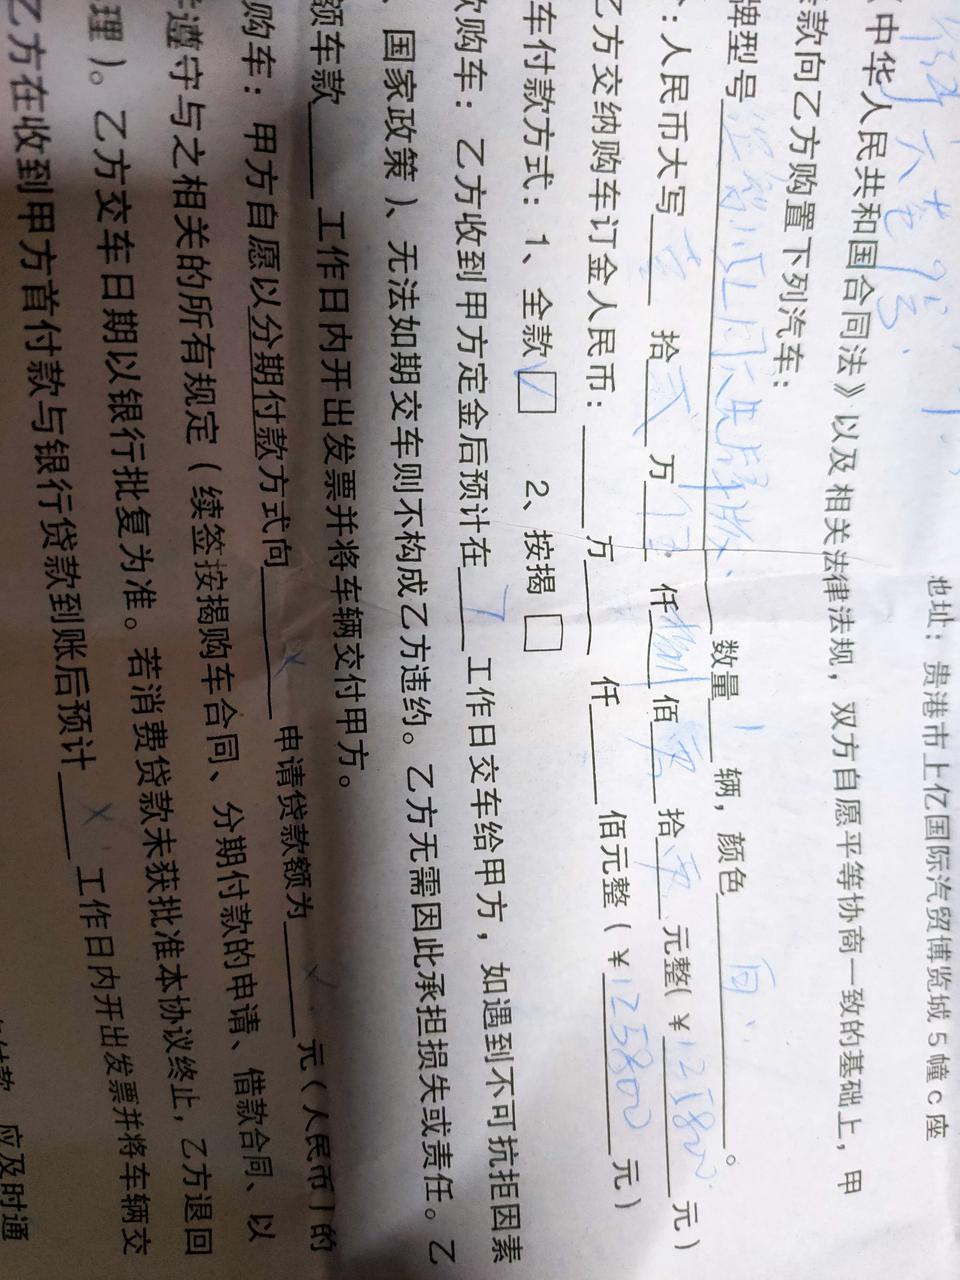 地址：贵港市上亿国际汽贸博览城5幢c座
《中华人民共和国合同法》以及相关法律法规，双方自愿平等协商一致的基础上，甲
款向乙方购置下列汽车：
牌型号 数量1辆，颜色白。
：人民币大写壹拾贰万伍仟捌佰零拾零元整(￥125800元)
乙方交纳购车订金人民币：万仟佰元整(￥125800元)
车付款方式：1、全款☑ 2、按揭□
购车：乙方收到甲方定金后预计在7工作日交车给甲方，如遇到不可抗拒因素
、国家政策)、无法如期交车则不构成乙方违约。乙方无需因此承担损失或责任。乙
额车款 工作日内开出发票并将车辆交付甲方。
购车：甲方自愿以分期付款方式向 X 申请贷款额为 X 元(人民币)的
遵守与之相关的所有规定(续签按揭购车合同、分期付款的申请、借款合同、以
理)。乙方交车日期以银行批复为准。若消费贷款未获批准本协议终止，乙方退回
乙方在收到甲方首付款与银行贷款到账后预计 X 工作日内开出发票并将车辆交
应及时通